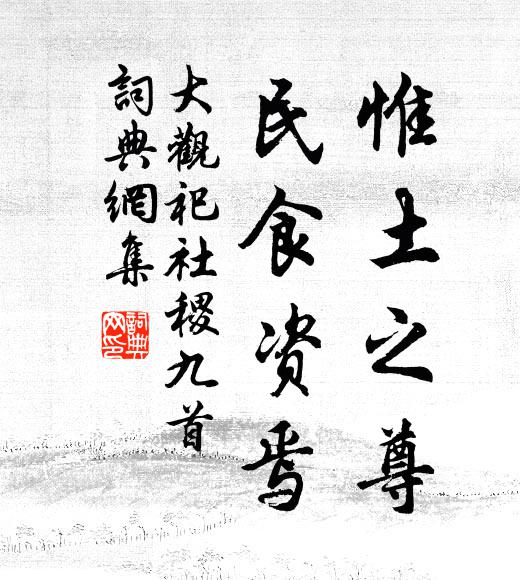 惟土之尊
民食资焉
大觀祀社稷九首
詞典網集
詞典
網印